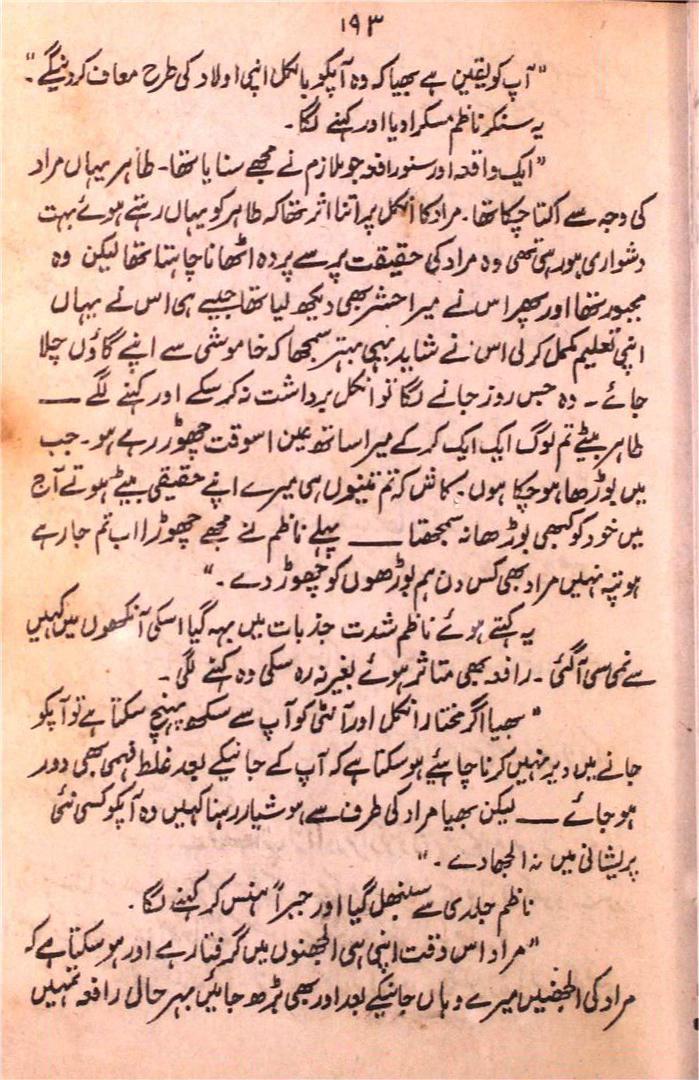 ۱۹۳
"آپ کو یقین ہے بھیا کہ وہ آپکو بالکل اپنی اولاد کی طرح معاف کر دینگے۔"
یہ سنکر ناظم مسکرا دیا اور کہنے لگا۔
"ایک واقعہ اور سنو رافعہ جو ملازم نے مجھے سنایا تھا۔ طاہر یہاں مراد
کی وجہ سے اکتا چکا تھا۔ مراد کا انکل پر اتنا اثر تھا کہ طاہر کو یہاں رہتے ہوئے بہت
دشواری ہو رہی تھی وہ مراد کی حقیقت پر سے پردہ اٹھانا چاہتا تھا لیکن وہ
مجبور تھا اور پھر اس نے میرا حشر بھی دیکھ لیا تھا جیسے ہی اس نے یہاں
اپنی تعلیم مکمل کر لی اس نے شاید یہی بہتر سمجھا کہ خاموشی سے اپنے گاؤں چلا
جائے۔ وہ جس روز جانے لگا تو انکل برداشت نہ کر سکے اور کہنے لگے ــــ
طاہر بیٹے تم لوگ ایک ایک کر کے میرا ساتھ عین اسوقت چھوڑ رہے ہو۔ جب
میں بوڑھا ہو چکا ہوں۔ کاش کہ تم تینوں ہی میرے اپنے حقیقی بیٹے ہوتے آج
میں خود کو کبھی بوڑھا نہ سمجھتا ــــ پہلے ناظم نے مجھے چھوڑا اب تم جا رہے
ہو پتہ نہیں مراد بھی کس دن ہم بوڑھوں کو چھوڑ دے۔"
یہ کہتے ہوئے ناظم شدت جذبات میں بہہ گیا اسکی آنکھوں میں کہیں
سے نمی سی آ گئی۔ رافعہ بھی متاثر ہوئے بغیر نہ رہ سکی وہ کہنے لگی۔
"بھیا اگر مختار انکل اور آنٹی کو آپ سے سکھ پہنچ سکتا ہے تو آپکو
جانے میں دیر نہیں کرنا چاہیئے ہو سکتا ہے کہ آپ کے جانیکے بعد غلط فہمی بھی دور
ہو جائے ــــ لیکن بھیا مراد کی طرف سے ہوشیار رہنا کہیں وہ آپکو کسی نئی
پریشانی میں نہ الجھا دے۔"
ناظم جلدی سے سنبھل گیا اور جبراً ہنس کر کہنے لگا۔
"مراد اس وقت اپنی ہی الجھنوں میں گرفتار ہے اور ہو سکتا ہے کہ
مراد کی الجھنیں میرے وہاں جانیکے بعد اور بھی بڑھ جائیں بہر حال رافعہ تمہیں